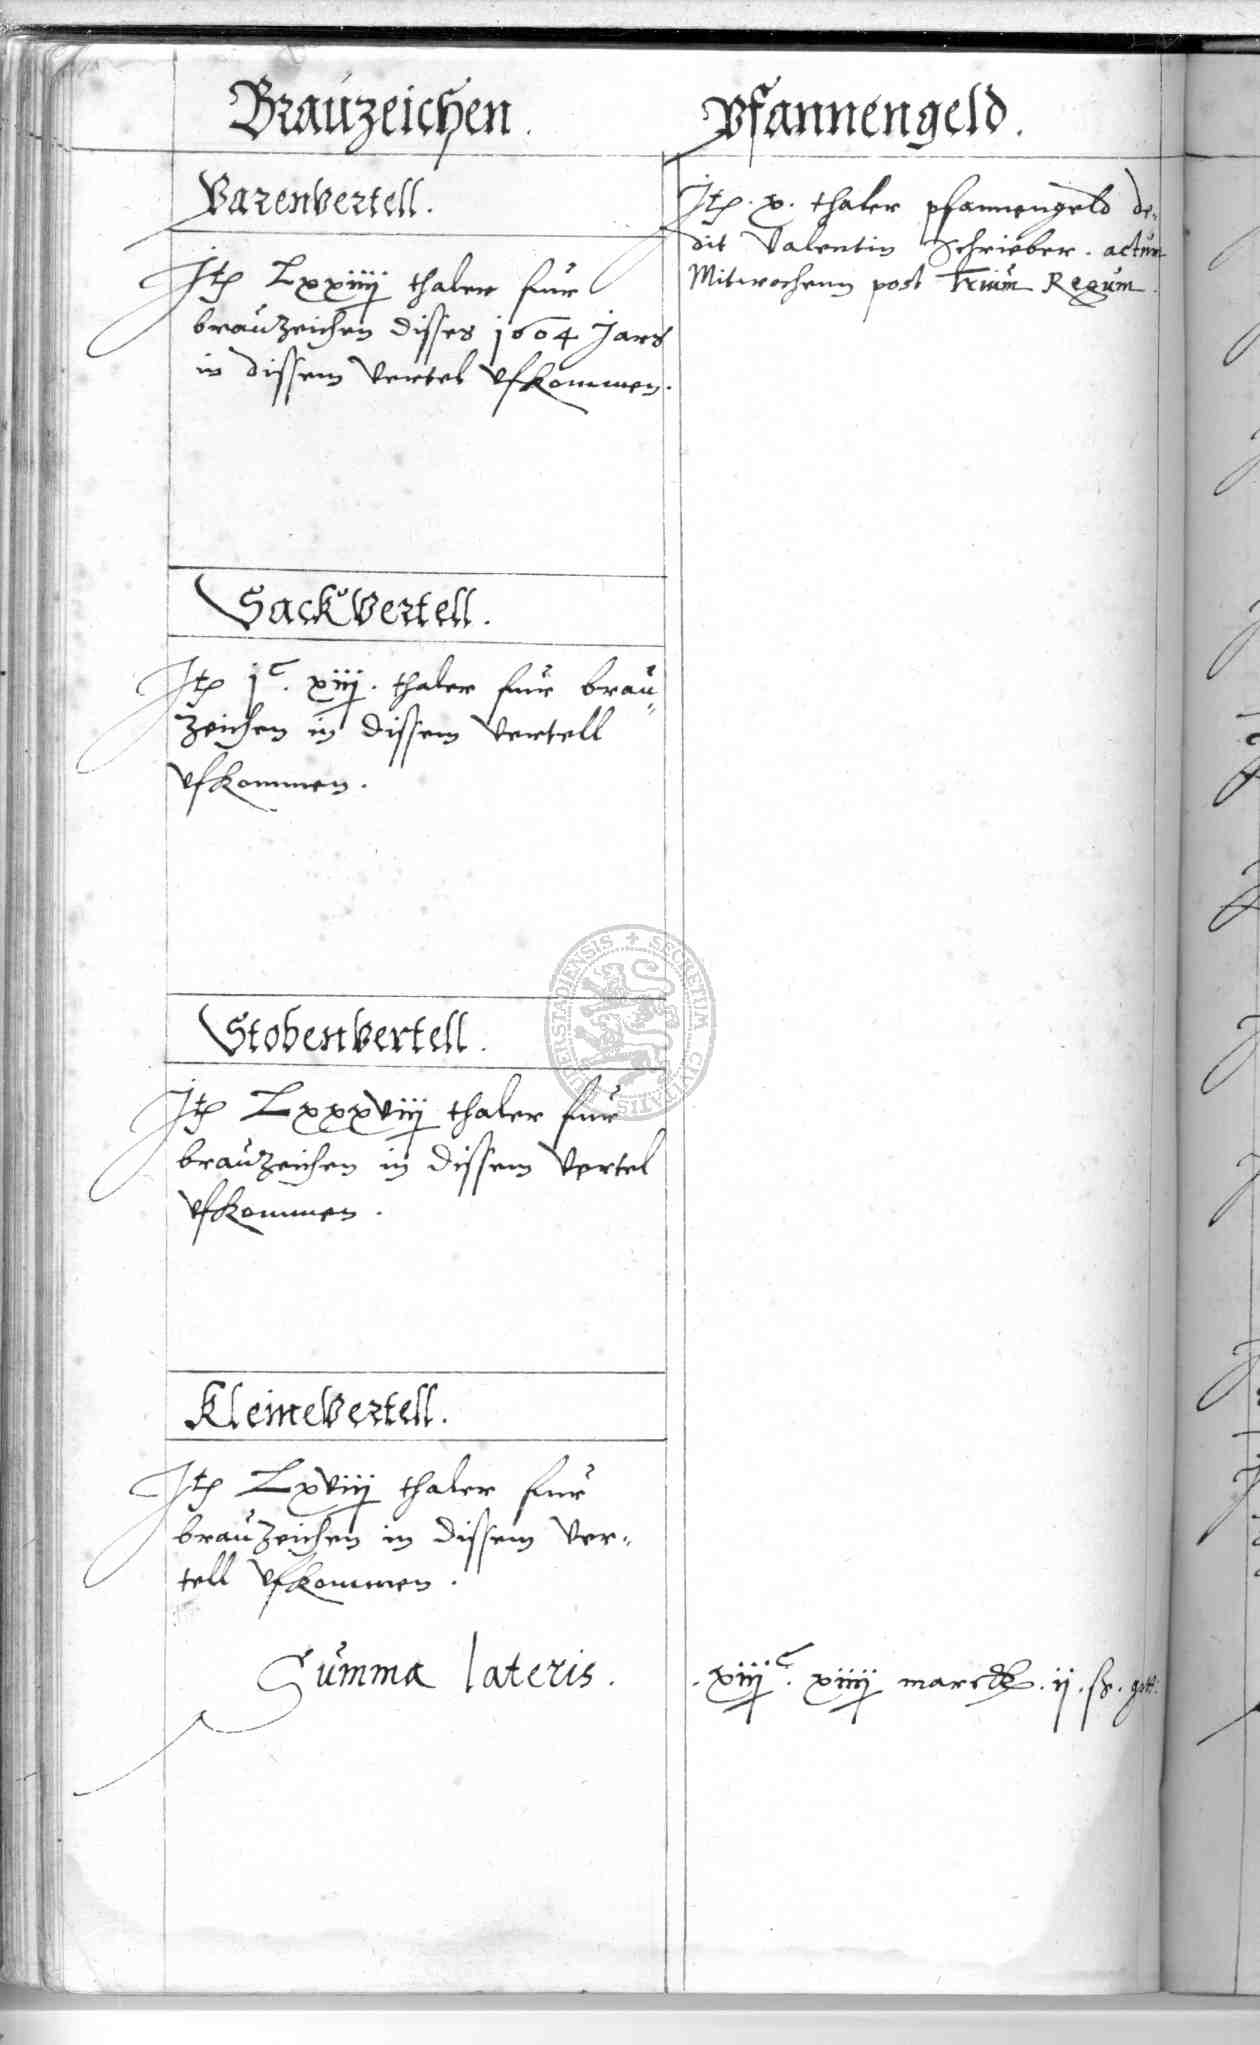 Brauzeichen.
Barenvertell.
Itē Lxxiiij thaler fur
brauzeichen disses 1604 Jars
in dissem vertel vfkommen.
Sackvertell.
Itē jᶜ. xiiij. thaler fur brau-
zeichen in dissem vertell
vfkommen.
Stobenvertell.
Itē Lxxxviij thaler fur
brauzeichen in dissem vertel
vfkommen.
Kleinevertell.
Itē Lxviij thaler fur
brauzeichen in dissem ver-
tell vfkommen.
Summa lateris.
Pfannengeld.
Itē. x. thaler pfannengeld de-
dit Valentin Schrieber. actum
Mitwochenn post Trium Regum.
. xiiijᶜ. xiiiij marck. ij. ß. gott.
SECRETUM CIVITATIS DUDERSTADIENSIS